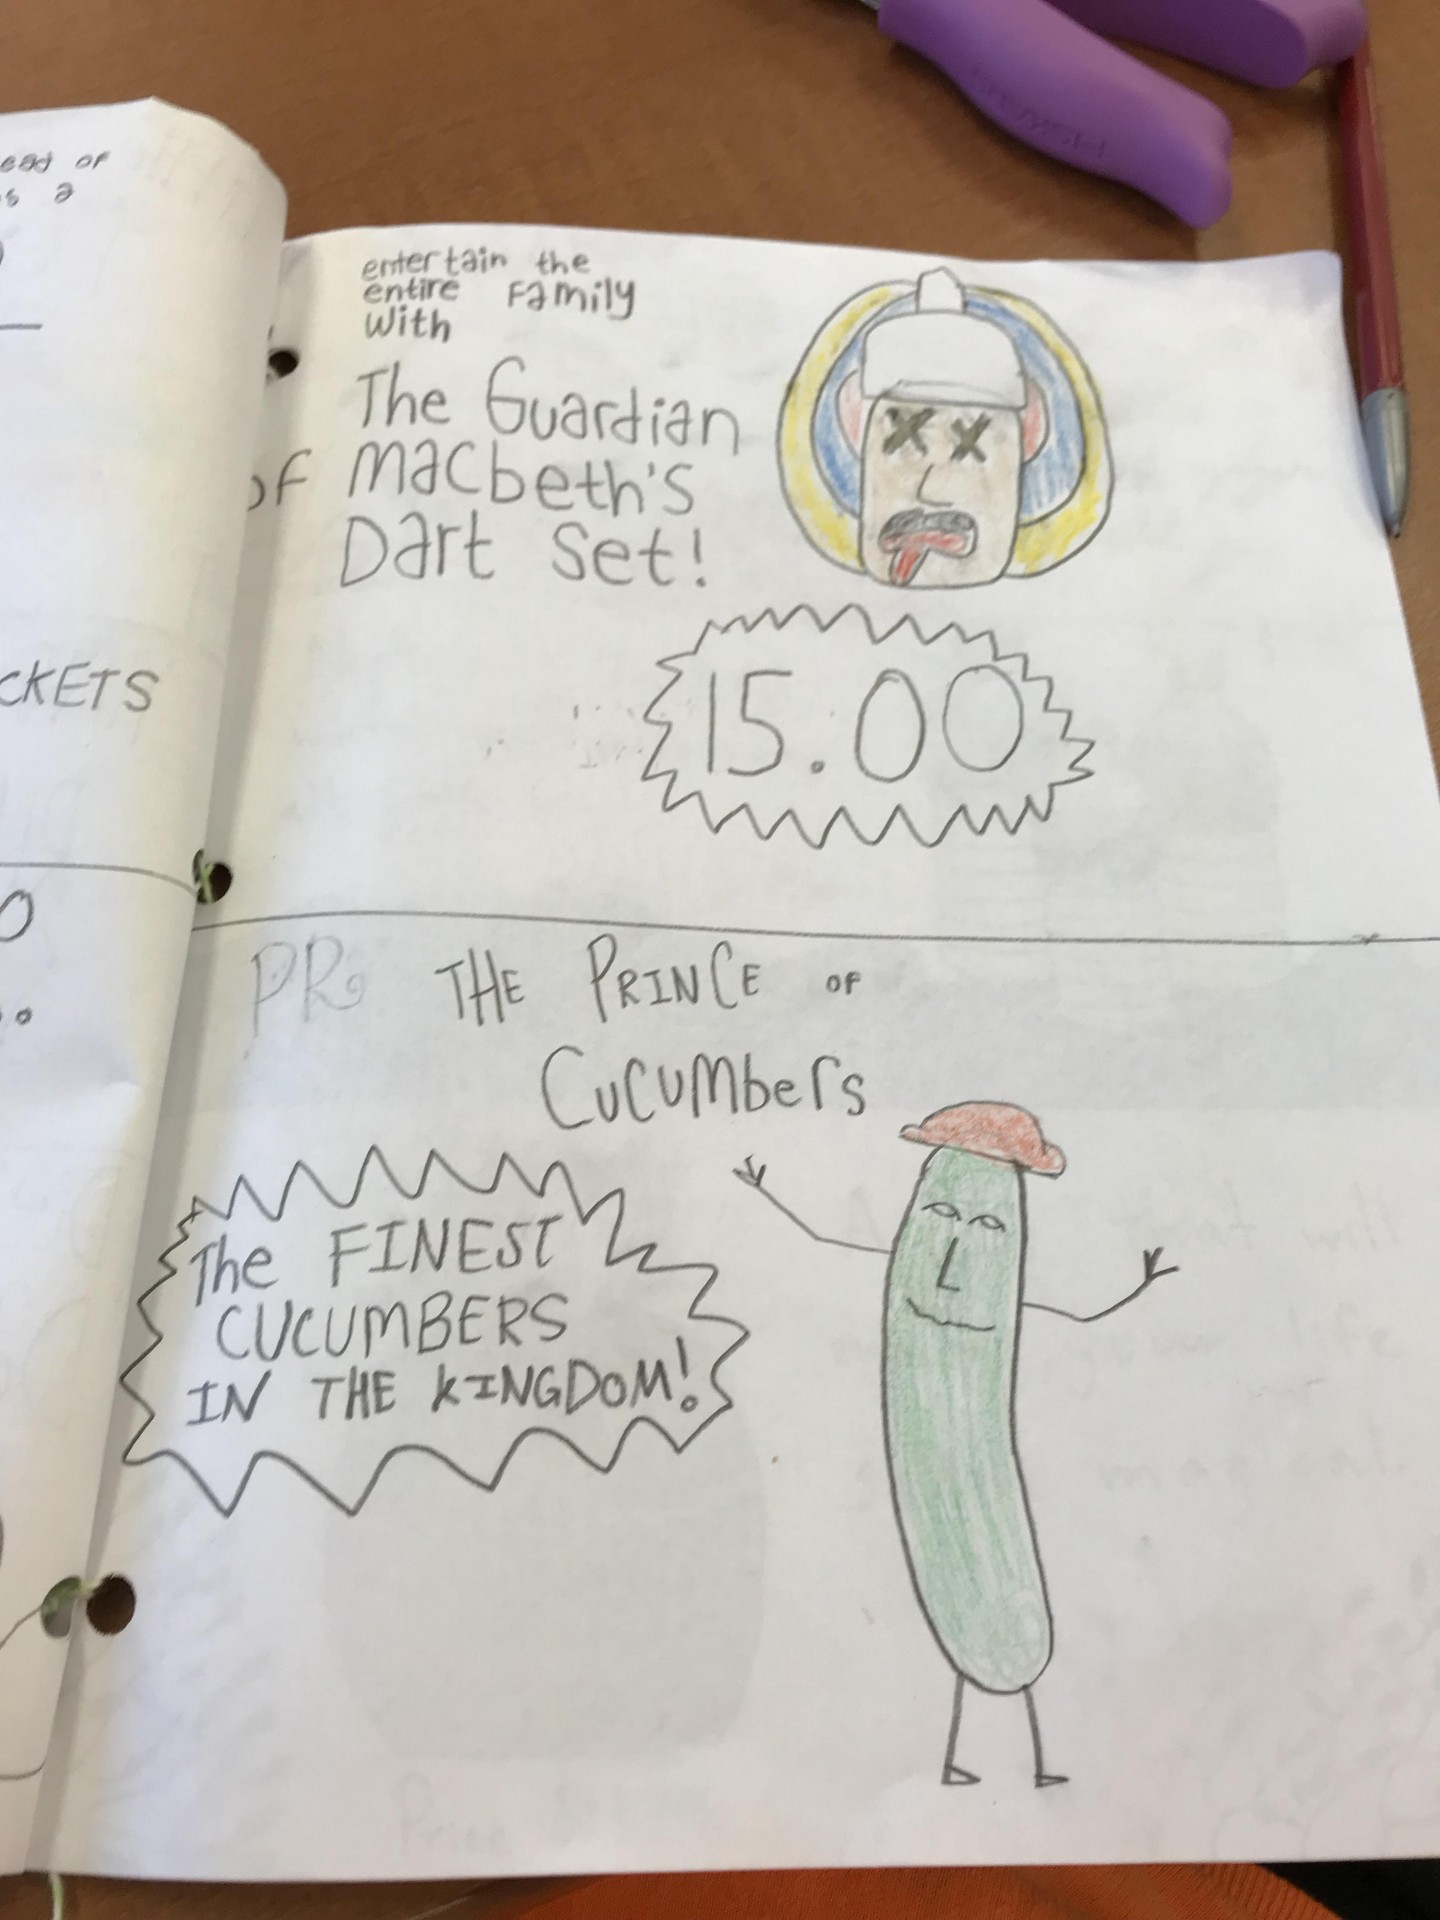 ead of
s a
CKETS
entertain the
entire Family
With
The Guardian
of Macbeth's
Dart Set!
15.00
PR THE PRINCE OF
CUCUMbers
The FINEST
CUCUMBERS
IN THE KINGDOM!